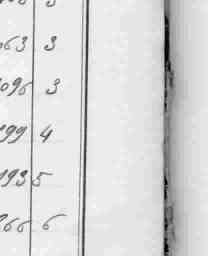 063 3
096 3
199 4
193 5
366 6